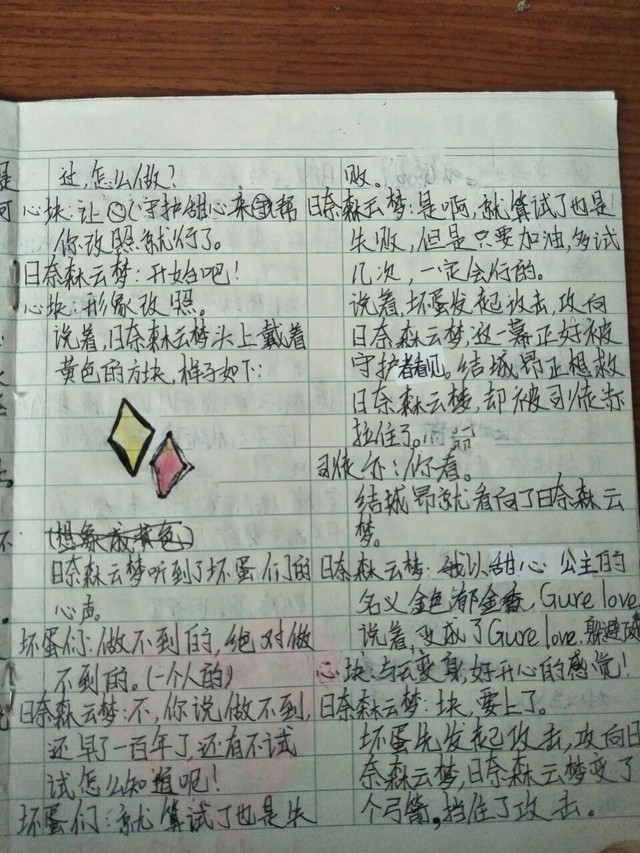 过,怎么做?
心块:让 守护甜心来 帮
你改照就行了。
日奈森云梦:开始吧!
心块:形象改照。
说着,日奈森云梦头上戴着
黄色的方块,样子如下:
(想象成黄色)
日奈森云梦听到了坏蛋们的
心声。
坏蛋们:做不到的,绝对做
不到的。(一个人的)
日奈森云梦:不,你说做不到,
还早了一百年了,还有不试
试怎么知道呢!
坏蛋们:就算试了也是失
败。
日奈森云梦:是啊,就算试了也是
失败,但是只要加油,多试
几次,一定会行的。
说着,坏蛋发起攻击,攻向
日奈森云梦,这一幕正好被
守护者看见。结城昂正想救
日奈森云梦,却被司徒赤
拉住了。
司徒赤:你看。
结城昂就看向了日奈森云
梦。
日奈森云梦:我以甜心公主的
名义 金色郁金香,Gure love
说着,变成了Gure love.躲避攻
心块:与云变身,好开心的感觉!
日奈森云梦:块,要上了。
坏蛋先发起攻击,攻向日
奈森云梦,日奈森云梦变了
个弓箭,挡住了攻击。